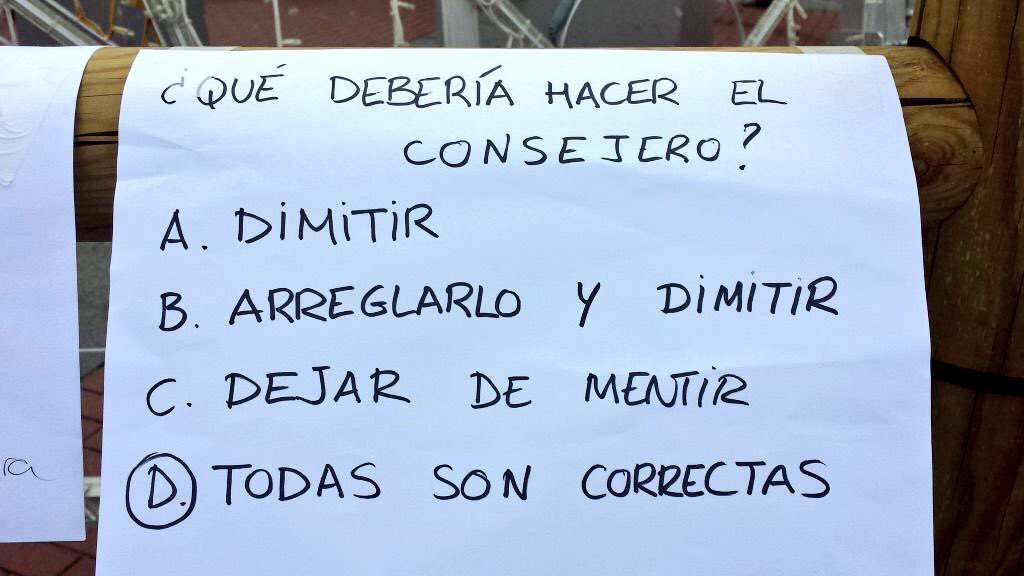 ¿QUÉ DEBERÍA HACER EL
CONSEJERO?
A. DIMITIR
B. ARREGLARLO Y DIMITIR
C. DEJAR DE MENTIR
D. TODAS SON CORRECTAS
ra